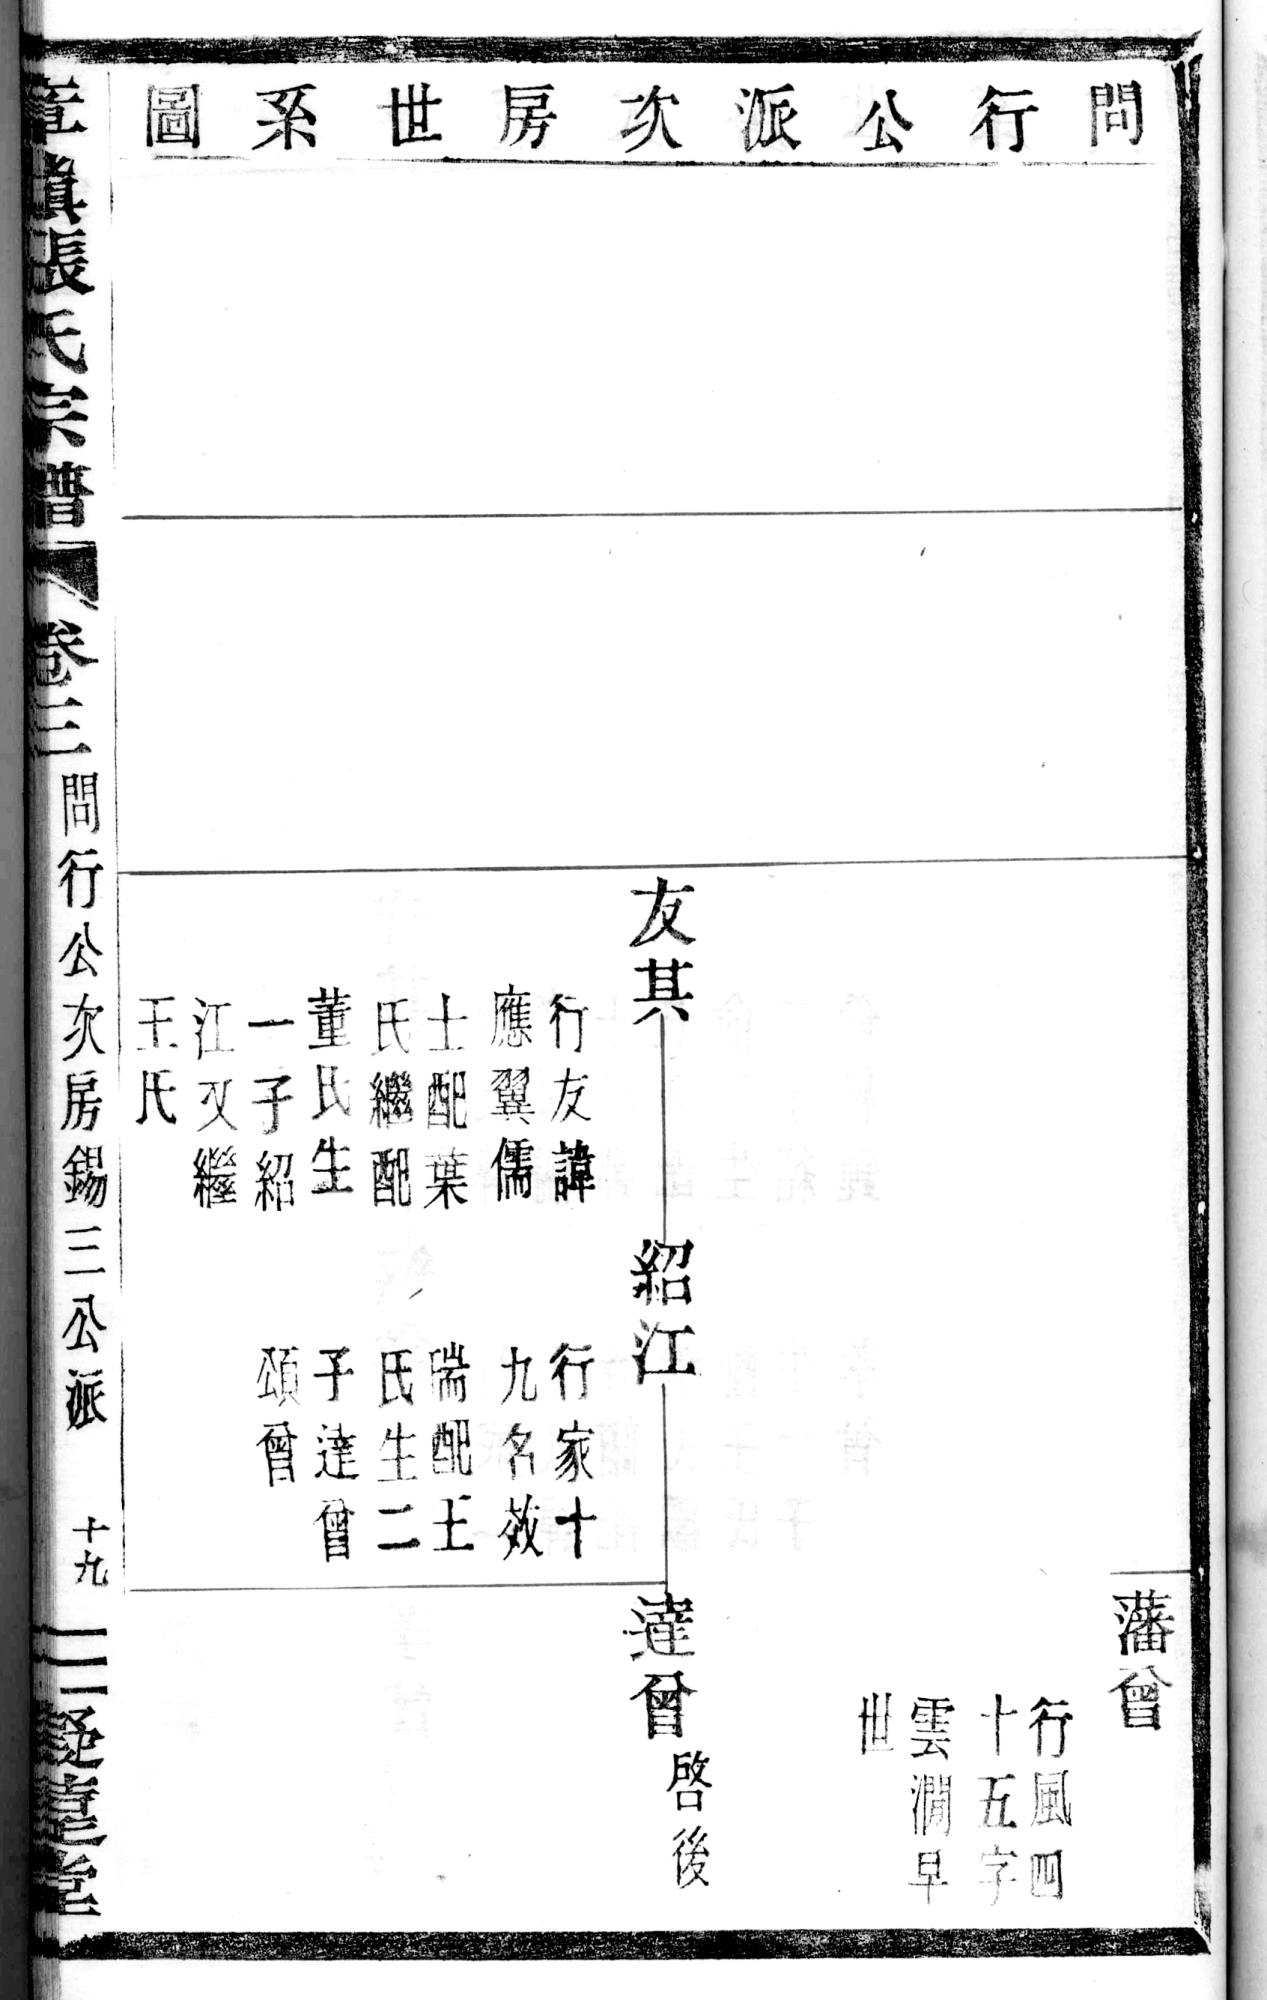 問行公派次房世系圖
藩曾
行風四
十五字
雲澗早
世
友其
行友諱
應翼儒
士配葉
氏繼配
董氏生
一子紹
江又繼
王氏
紹江
行家十
九名效
瑞配王
氏生二
子達曾
頌曾
達曾
啓後
張氏宗譜
卷三
問行公次房錫三公派
十九
堂